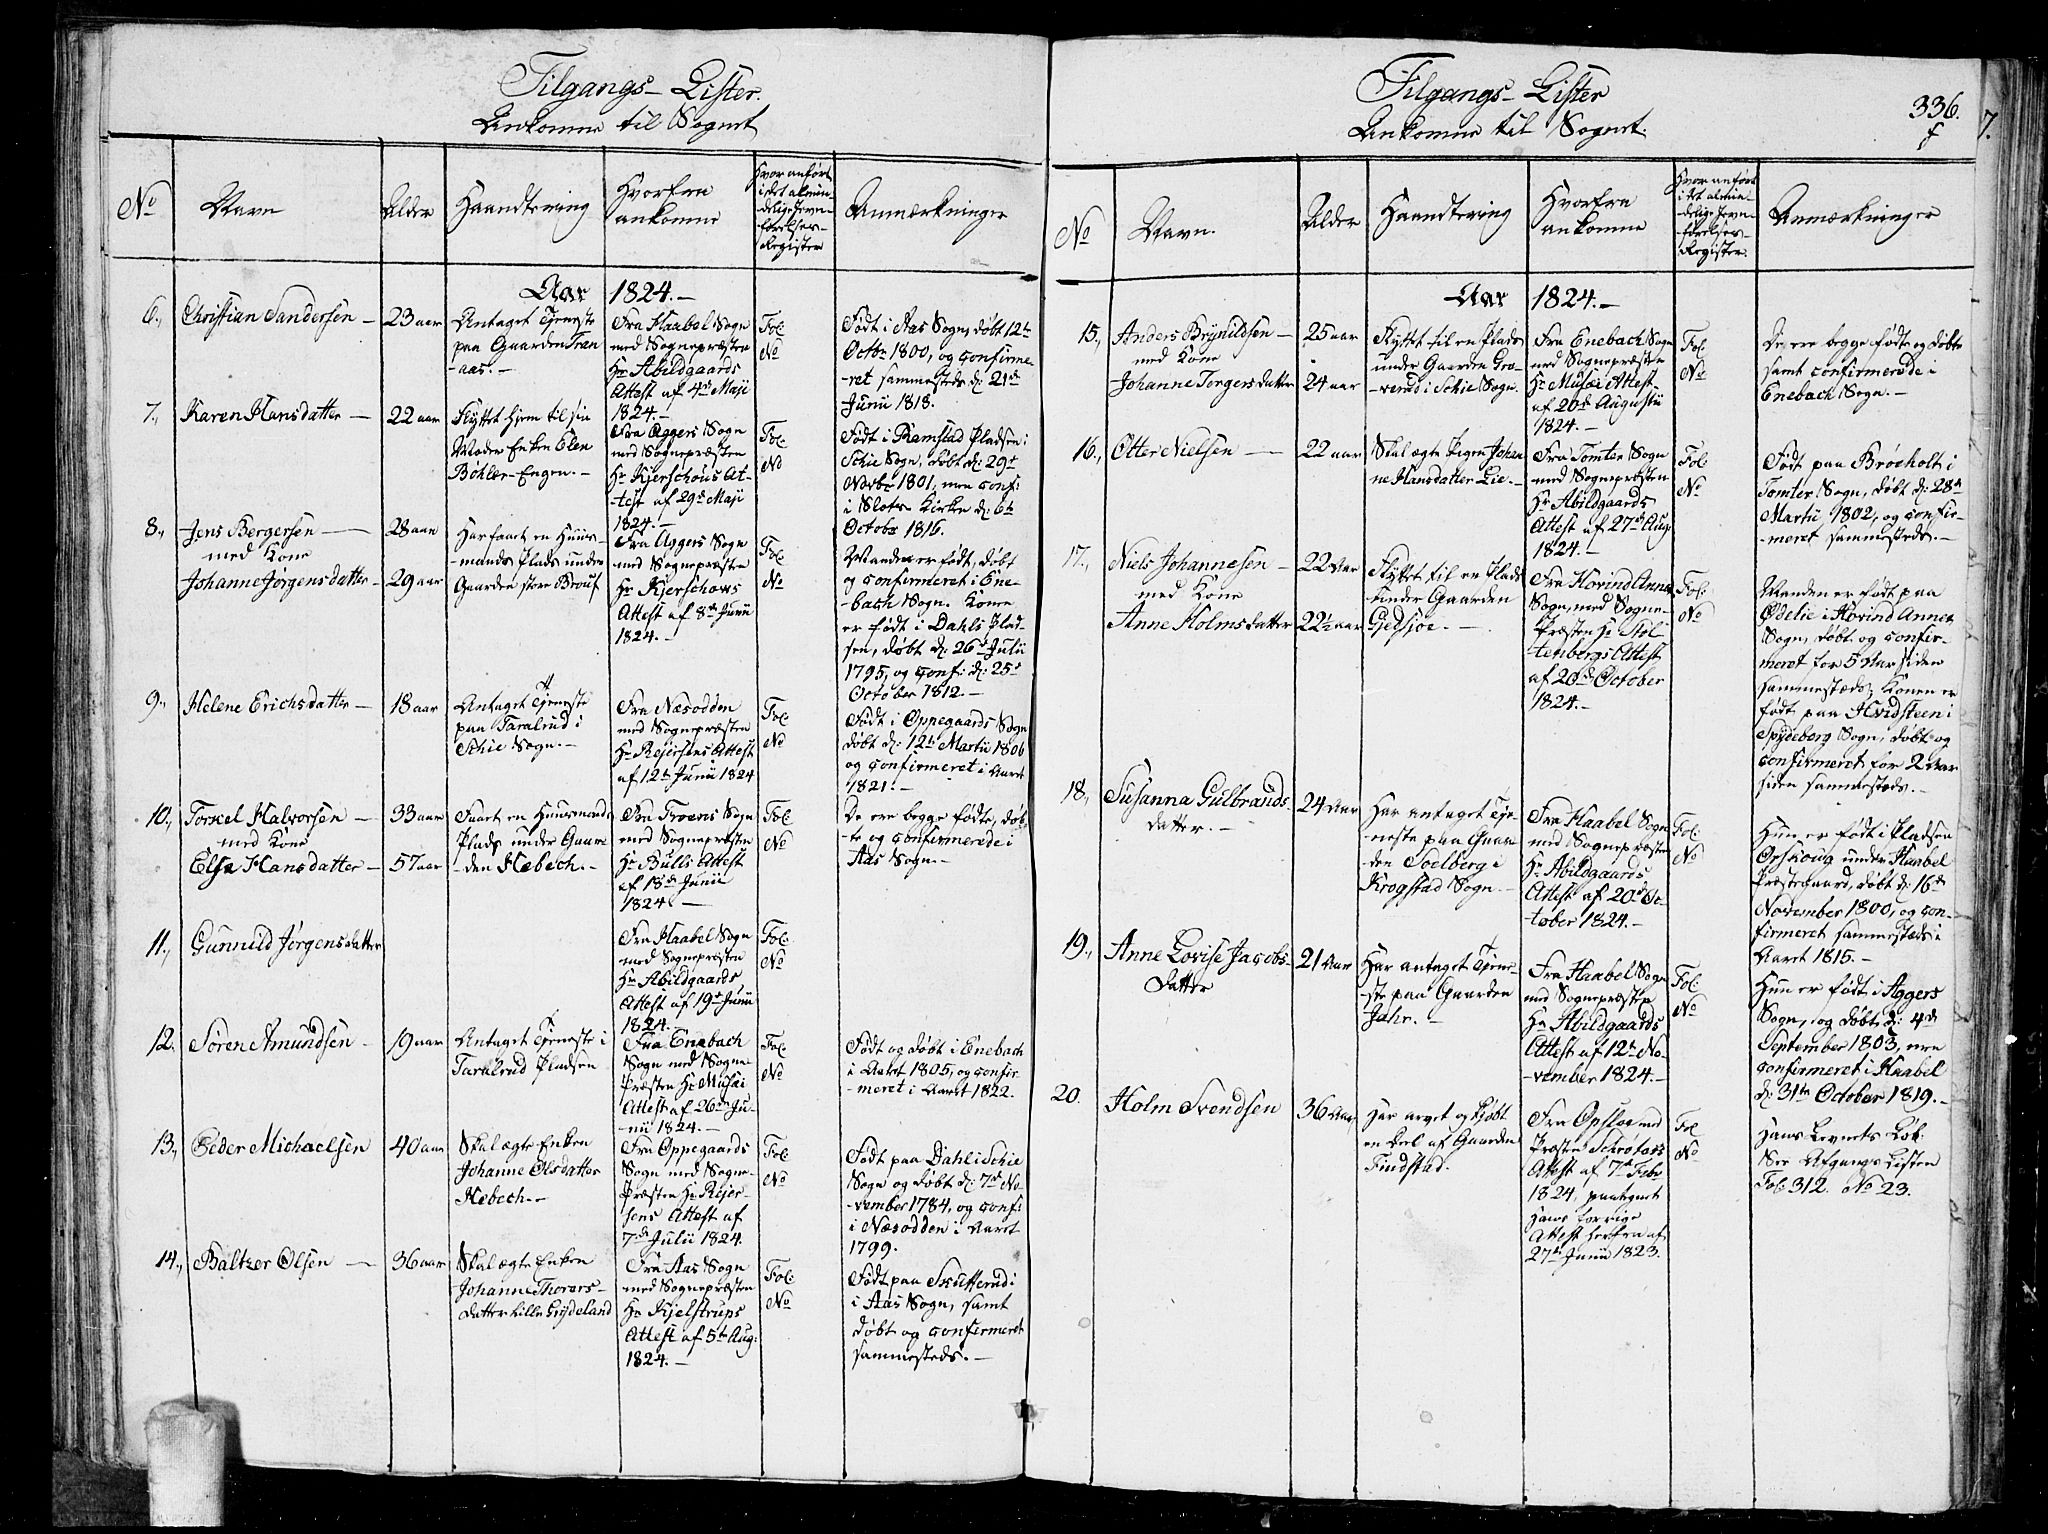 Tilgangs-Lister.
Ankomne til Sognet
No
Navn
Alder
Haandtering
Hvorfra
ankomne
Hvor anført
i det almin-
delige Jevn-
førelses-
Register
Anmærkninger
Aar 1824.-
6.,
Christian Sandersen -
23 aar
Antaget Tjeneste
paa Gaarden Tran
-aas. -
Fra Haabel Sogn
med Sognepræsten
Hr Abildgaards
Attest af 4de Maji
1824.-
Fol:
No
Født i Aas Sogn, døbt 12te
Octobr 1800, og confirme-
-ret sammesteds d: 21de
Junii 1818.
7.,
Karen Hansdatter -
22 aar
Flyttet hjem til sin
Moder Enken Elen
Bøhler-Engen. -
Fra Aggers Sogn
med Sognepræsten
Hr Kjerschous At-
test af 29de Maji
1824.-
Fol:
No
Født i Ramstad Pladsen i
Schie Sogn, døbt d: 29de
Novbr 1801, men conf:
i Slots Kirke d: 6te
October 1816.
8.,
Jens Bergersen -
med Kone
Johanne Jørgensdatter -
28 aar
29 aar
Har faaet en Huus-
mands Plads under
Gaarden store Brouf
Fra Aggers Sogn
med Sognepræsten
Hr Kjerschows
Attest af 8de Junii
1824.-
Fol:
No
Manden er født, døbt
og confirmeret i Ene-
-bach Sogn. Konen
er født i Dahls Plad-
sen, døbt d: 26de Julii
1795, og conf: d: 25de
October 1812.-
9.,
Helene Erichsdatter -
18 aar
Antaget Tjeneste
paa Taralrud i
Schie Sogn. -
Fra Næsodden
med Sognepræsten
Hr Rejersens Attest
af 12te Junii 1824
Fol:
No
Født i Oppegaards Sogn
døbt d: 12te Martii 1806
og confirmeret i Aaret
1821.-
10.,
Torkel Halvorsen -
med Kone
Elsa Hansdatter -
33 aar
57 aar
Faaet en Huusmands
Plads under Gaar-
-den Nebech. -
Fra Froens Sogn
med Sognepræsten
Hr Bulls Attest
af 18de Junii
1824. -
Fol:
No
De ere begge fødte, døb-
-te og confirmerede i
Aas Sogn.-
11.,
Gunnild Jørgensdatter
Fra Haabel Sogn
med Sognepræsten
Hr Abildgaards
Attest af 19de Junii
1824. -
Fol:
No
12.
Søren Amundsen -
19 aar
Antaget Tjeneste i
Taralrud Pladsen
Fra Enebach
Sogn med Sogne
Præsten Hr Musæi
Attest af 26de Ju-
-nii 1824.-
Fol:
No
Født og døbt i Enebach
i Aaret 1805, og confir-
-meret i Aaret 1822.
13.,
Peder Michaelsen
40 aar
Skal ægte Enken
Johanne Olsdatter
Nebech. -
Fra Oppegaards
Sogn med Sogne-
Præsten Hr Rejer-
sens Attest af
7de Julii 1824.
Fol:
No
Født paa Dahl i Schie
Sogn og døbt d: 7de No-
-vember 1784, og conf:
i Næsodden i Aaret
1799.
14.,
Baltzer Olsen -
36 aar
Skal ægte Enken
Johanne Thorers-
datter Lille
Fra Aas Sogn
med Sognepræsten
Hr Kjelstrups
Attest af 5te Aug:
1824.-
Fol:
No
Født paa Skutterud i
i Aas Sogn, samt
døbt og confirmeret
sammesteds. -
Tilgangs-Lister
Ankomne til Sognet.
336.
f
7.
No
Navn.
Alder
Haandtering
Hvorfra
ankomne
Hvor anført
i det almin-
-delige Jevn-
førelses-
Register.
Anmærkninger
Aar 1824.-
15.,
Anders Brynildsen -
med Kone
Johanne Torgersdatter
25 aar
24 aar
Flyttet til en Plads
under Gaarden Gro-
-verud i Schie Sogn.
Fra Enebach Sogn
med Sognepræsten
Hr Musæi Attest
af 20de Augustii
1824.-
Fol:
No
De ere begge fødte og døbte
samt confirmerede i
Enebach Sogn. -
16.,
Otter Nielsen -
22 aar
Skal ægte Pigen Johan
ne Hansdatter Lie. -
Fra Tomter Sogn
med Sognepræsten
Hr Abildgaards
Attest af 27de Aug:
1824.-
Fol:
No
Født paa Brøeholt i
Tomter Sogn, døbt d: 28de
Martii 1802, og confir-
-meret sammesteds. -
17.,
Niels Johannesen -
med Kone
Anne Holmsdatter
22 Aar
22½ aar
Flyttet til en Plads
under Gaarden
Gjedsjøe. -
Fra Hovind Annex
Sogn, med Sogne-
Præsten Hr Stol-
-tenbergs Attest
af 20de October
1824.-
Fol:
No
Manden er født paa
Ødelie i Hovind Annex
Sogn, døbt og confir-
meret for 5 Aar siden
sammesteds; Konen er
født paa Hvidsteen i
Spydeberg Sogn, døbt og
confirmeret for 2 Aar
siden sammesteds. -
18.,
Susanna Gulbrands-
datter. -
24 Aar
Har antaget Tje-
neste paa Gaar-
den Soelberg i
Krogstad Sogn. -
Fra Haabel Sogn
med Sognepræsten
Hr Abildgaards
Attest af 20de Oc-
tober 1824.-
Fol:
No
Hun er født i Pladsen
Ørskoug under Haabel
Præstegaard, døbt d: 16de
November 1800, og con-
firmeret sammesteds i
Aaret 1815. -
19.,
Anne Lovise Jacobs-
datter
21 Aar
Har antaget Tjene-
-ste paa Gaarden
Jahr. -
Fra Haabel Sogn
med Sognepræsten
Hr Abildgaards
Attest af 12te No-
-vember 1824.-
Fol:
No
Hun er født i Aggers
Sogn, og døbt d: 4de
September 1803, men
confirmeret i Haabel
d: 31te October 1819. -
20.
Holm Svendsen
36 Aar
Har arvet og kjøbt
en Deel af Gaarden
Findstad.
Fra Opsloe med
Præsten Schrøters
Attest af 7de Febr
1824, paategnet
hans forrige
Attest herfra af
27de Junii 1823.
Fol
No
Hans Levnets Løb.
See Afgangs Listen
Fol: 312. No 23.